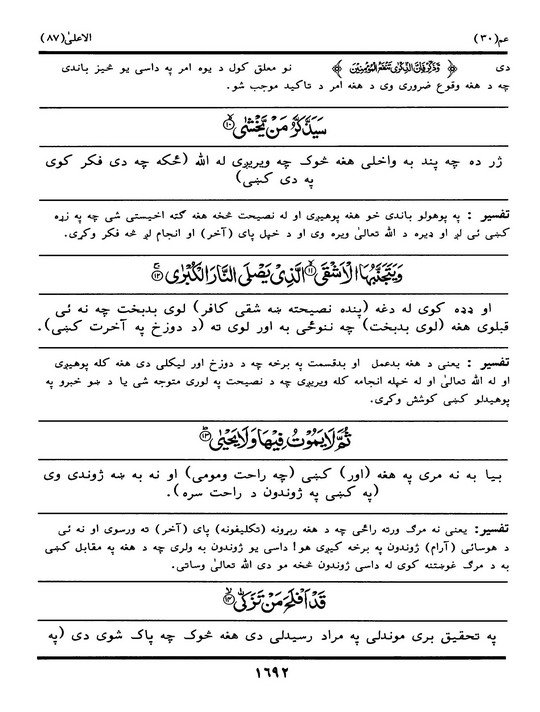 عم (٣٠) الاعلیٰ (٨٧)
دی ﴿ وَذَكِّرْ فَإِنَّ الذِّكْرٰى تَنْفَعُ الْمُؤْمِنِيْنَ ﴾ نو معلق کول د یوه امر په داسی یو څیز باندی
چه د هغه وقوع ضروری وی د هغه امر د تاکید موجب شو.
سَيَذَّكَّرُ مَنْ يَّخْشٰى ۙ۝١٠
ژر ده چه پند به واخلی هغه څوک چه ویریږی له الله (ځکه چه دی فکر کوی
په دی کښی)
تفسیر : په پوهولو باندی خو هغه پوهیږی او له نصیحت څخه هغه ګټه اخیستی شی چه په زړه
کښی ئی لږ او ډیره د الله تعالیٰ ویره وی او د خپل پای (آخر) او انجام لږ څه فکر وکړی.
وَيَتَجَنَّبُهَا الْاَشْقَى ۙ۝١١ الَّذِيْ يَصْلَى النَّارَ الْكُبْرٰى ۚ۝١٢
او ډډه کوی له دغه (پنده نصیحته ښه شقی کافر) لوی بدبخت چه نه ئی
قبلوی هغه (لوی بدبخت) چه ننوځی به اور لوی ته (د دوزخ په آخرت کښی).
تفسیر : یعنی د هغه بدعمل او بدقسمت په برخه چه د دوزخ اور لیکلی دی هغه کله پوهیږی
او له الله تعالیٰ او له خپله انجامه کله ویریږی چه د نصیحت په لوری متوجه شی یا د ښو خبرو په
پوهیدلو کښی کوشش وکړی.
ثُمَّ لَا يَمُوْتُ فِيْهَا وَلَا يَحْيٰى ؕ۝١٣
بیا به نه مری په هغه (اور) کښی (چه راحت ومومی) او نه به ښه ژوندی وی
(په کښی په ژوندون د راحت سره).
تفسیر: یعنی نه مرګ ورته راځی چه د هغه ربړونه (تکلیفونه) پای (آخر) ته ورسوی او نه ئی
د هوسائی (آرام) ژوندون په برخه کیږی هو! داسی یو ژوندون به ولری چه د هغه په مقابل کښی
به د مرګ غوښتنه کوی له داسی ژوندون څخه مو دی الله تعالیٰ وساتی.
قَدْ اَفْلَحَ مَنْ تَزَكّٰى ۙ۝١٤
په تحقیق بری موندلی په مراد رسیدلی دی هغه څوک چه پاک شوی دی (په
١٦٩٢